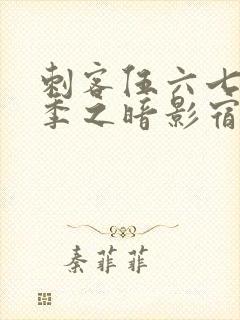 刺客伍六七
季之暗影宿
秦菲菲